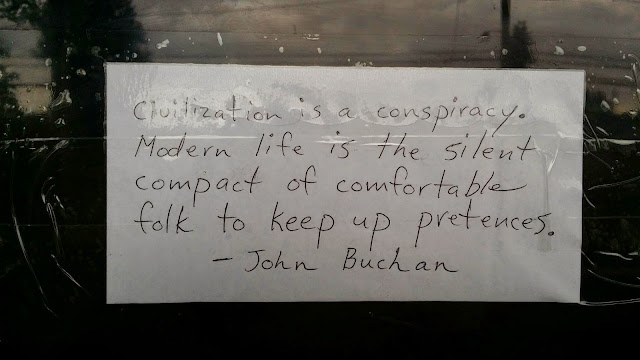 Civilization is a conspiracy.
Modern life is the silent
compact of comfortable
folk to keep up pretences.
- John Buchan